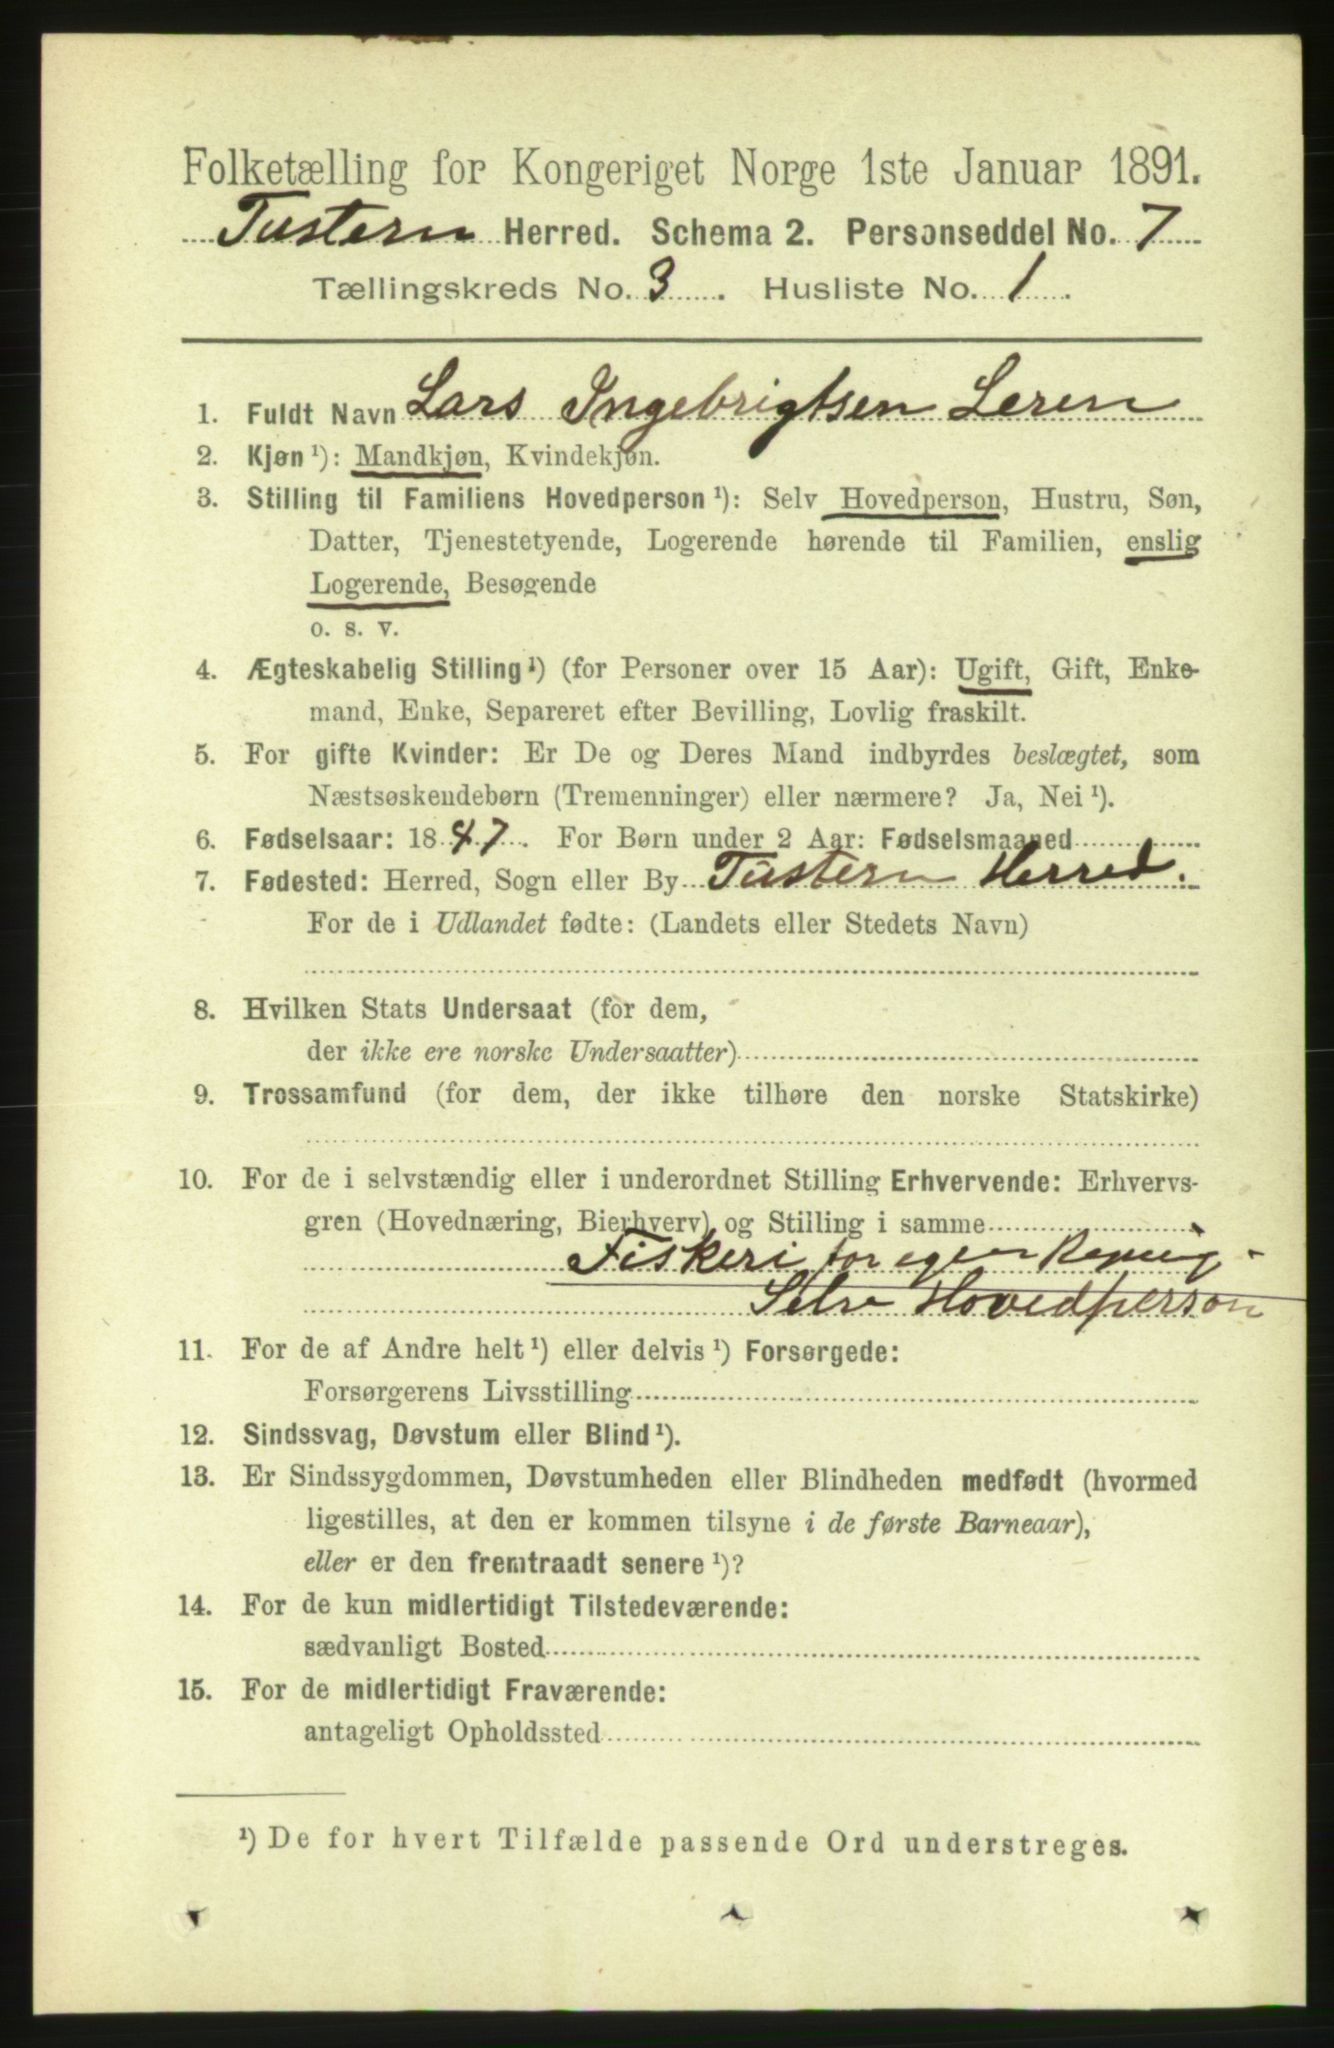 Folketælling for Kongeriget Norge 1ste Januar 1891.
Tustern Herred. Schema 2. Personseddel No. 7
Tællingskreds No. 3. Husliste No. 1.
1. Fuldt Navn Lars Ingebrigtsen Leren
2. Kjøn¹): Mandkjøn, Kvindekjøn.
3. Stilling til Familiens Hovedperson¹): Selv Hovedperson, Hustru, Søn,
Datter, Tjenestetyende, Logerende hørende til Familien, enslig
Logerende, Besøgende
o. s. v.
4. Ægteskabelig Stilling¹) (for Personer over 15 Aar): Ugift, Gift, Enke-
mand, Enke, Separeret efter Bevilling, Lovlig fraskilt.
5. For gifte Kvinder: Er De og Deres Mand indbyrdes beslægtet, som
Næstsøskendebørn (Tremenninger) eller nærmere? Ja, Nei¹).
6. Fødselsaar: 1847. For Børn under 2 Aar: Fødselsmaaned
7. Fødested: Herred, Sogn eller By Tustern Herred.
For de i Udlandet fødte: (Landets eller Stedets Navn)
8. Hvilken Stats Undersaat (for dem,
der ikke ere norske Undersaatter)
9. Trossamfund (for dem, der ikke tilhøre den norske Statskirke)
10. For de i selvstændig eller i underordnet Stilling Erhvervende: Erhvervs-
gren (Hovednæring, Bierhverv) og Stilling i samme
Fiskeri for egen Regnig
Selv Hovedperson
11. For de af Andre helt¹) eller delvis¹) Forsørgede:
Forsørgerens Livsstilling
12. Sindssvag, Døvstum eller Blind¹).
13. Er Sindssygdommen, Døvstumheden eller Blindheden medfødt (hvormed
ligestilles, at den er kommen tilsyne i de første Barneaar),
eller er den fremtraadt senere¹)?
14. For de kun midlertidigt Tilstedeværende:
sædvanligt Bosted
15. For de midlertidigt Fraværende:
antageligt Opholdssted
¹) De for hvert Tilfælde passende Ord understreges.